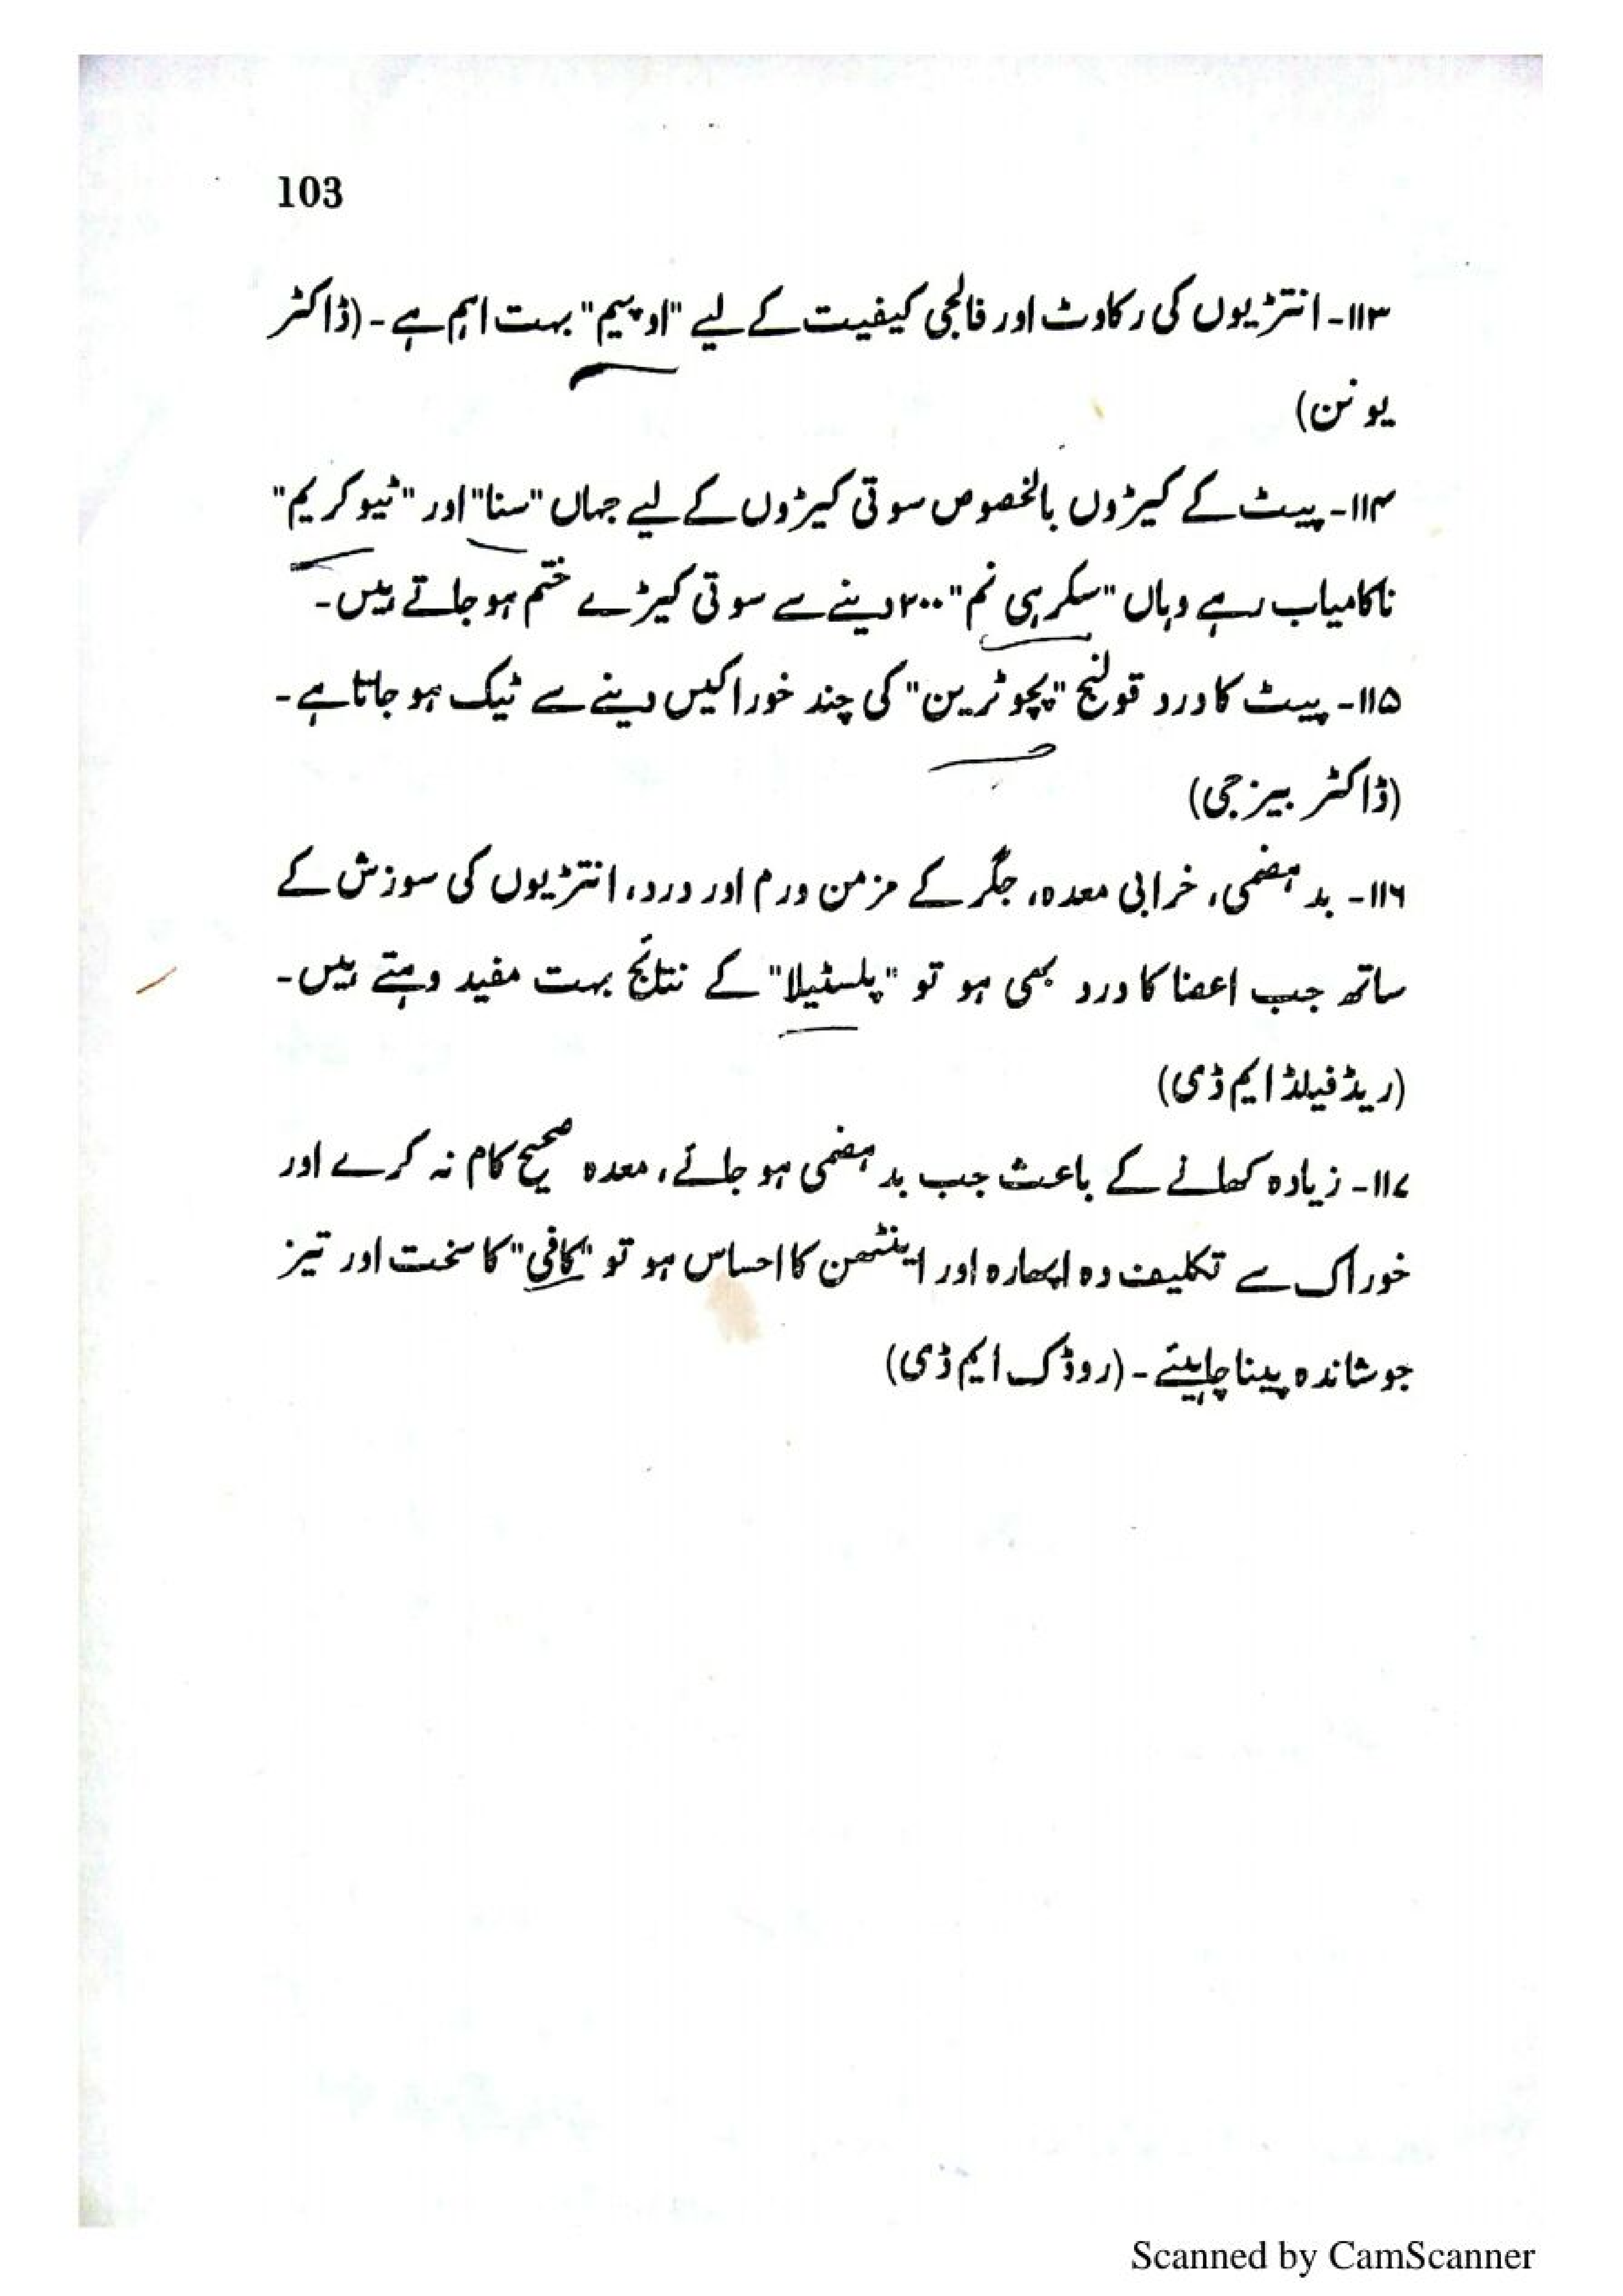 103
۱۱۳۔ انتڑیوں کی رکاوٹ اور فالجی کیفیت کے لیے "اوپیم" بہت اہم ہے۔ (ڈاکٹر
یونن)
۱۱۴۔ پیٹ کے کیڑوں بالخصوص سوتی کیڑوں کے لیے جہاں "سنا" اور "ٹیوکریم"
ناکامیاب رہے وہاں "سکرہی نم" ۲۰۰ دینے سے سوتی کیڑے ختم ہو جاتے ہیں۔
۱۱۵۔ پیٹ کا درد قولنج "پچوٹرین" کی چند خوراکیں دینے سے ٹیک ہو جاتا ہے۔
(ڈاکٹر بیزجی)
۱۱۶۔ بد ہضمی، خرابی معدہ، جگر کے مزمن ورم اور درد، انتڑیوں کی سوزش کے
ساتھ جب اعضا کا درد بھی ہو تو "پلسٹیلا" کے نتائج بہت مفید وہتے ہیں۔
(ریڈفیلڈ ایم ڈی)
۱۱۷۔ زیادہ کھانے کے باعث جب بد ہضمی ہو جائے، معدہ صحیح کام نہ کرے اور
خوراک سے تکلیف دہ اپھارہ اور اینٹھن کا احساس ہو تو "کافی" کا سخت اور تیز
جوشاندہ پینا چاہیئے۔ (روڈک ایم ڈی)
Scanned by CamScanner